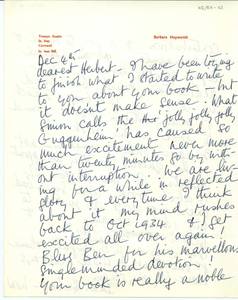 Trewyn Studio
St. Ives
Cornwall
Barbara Hepworth
Dec 4th
dearest Herbert - I have been trying
to finish what I started to write
to you about your book - but
it doesn't make sense. What
Simon calls the jolly jolly jolly
Guggenheim, has caused so
much excitement never more
than twenty minutes go by with
out interruption. We are liv
ing for a while in reflected
glory & everytime I think
about it my mind rushes
back to Oct 1934 & I get
excited all over again!
Bless Ben for his marvellous
singleminded devotion!
Your book is really a noble